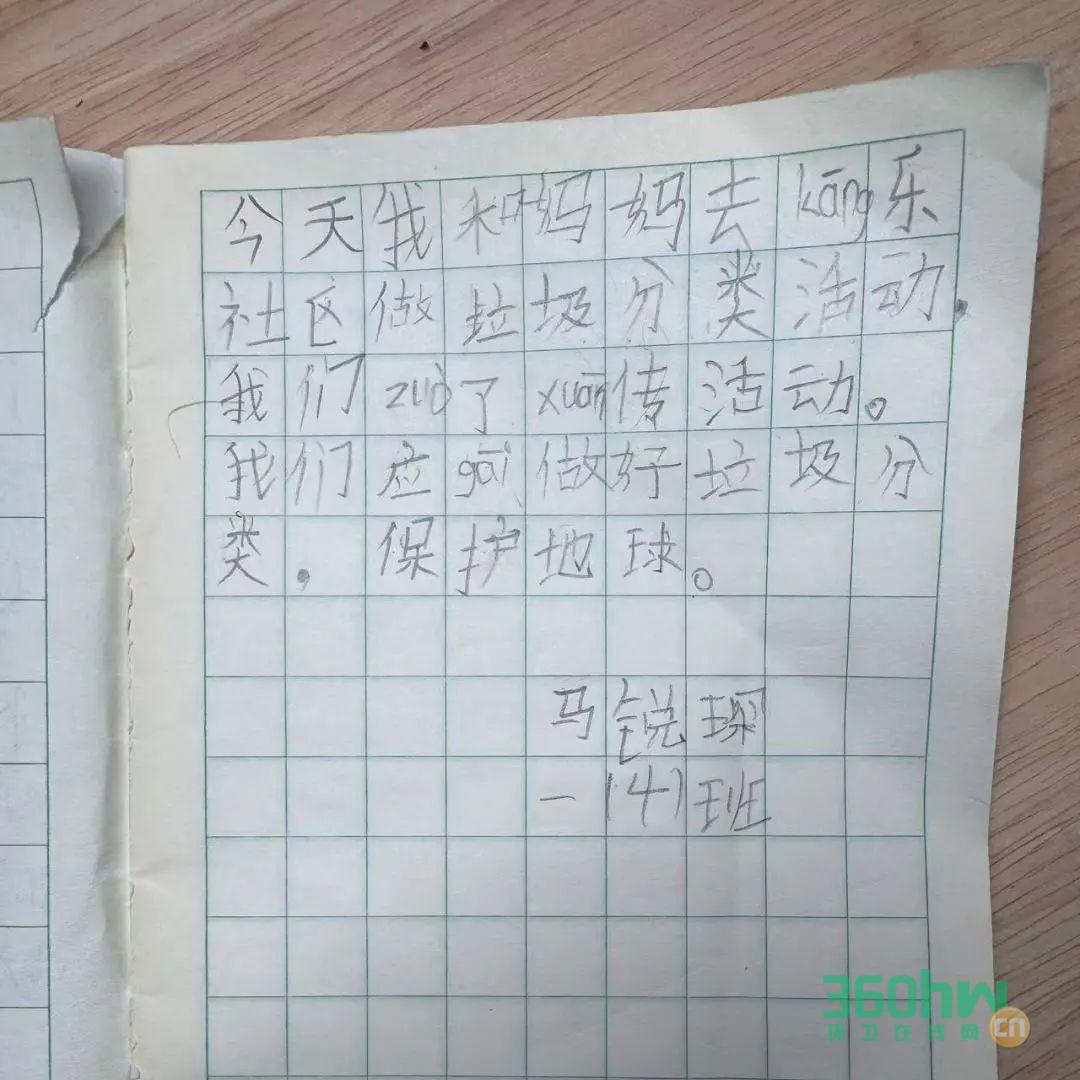 今天我和妈妈去kāng乐
社区做垃圾分类活动.
我们zuò了xuān传活动。
我们应gāi做好垃圾分
类,保护地球。
马锐琛
一(4)班
360hw
环卫在线网cn